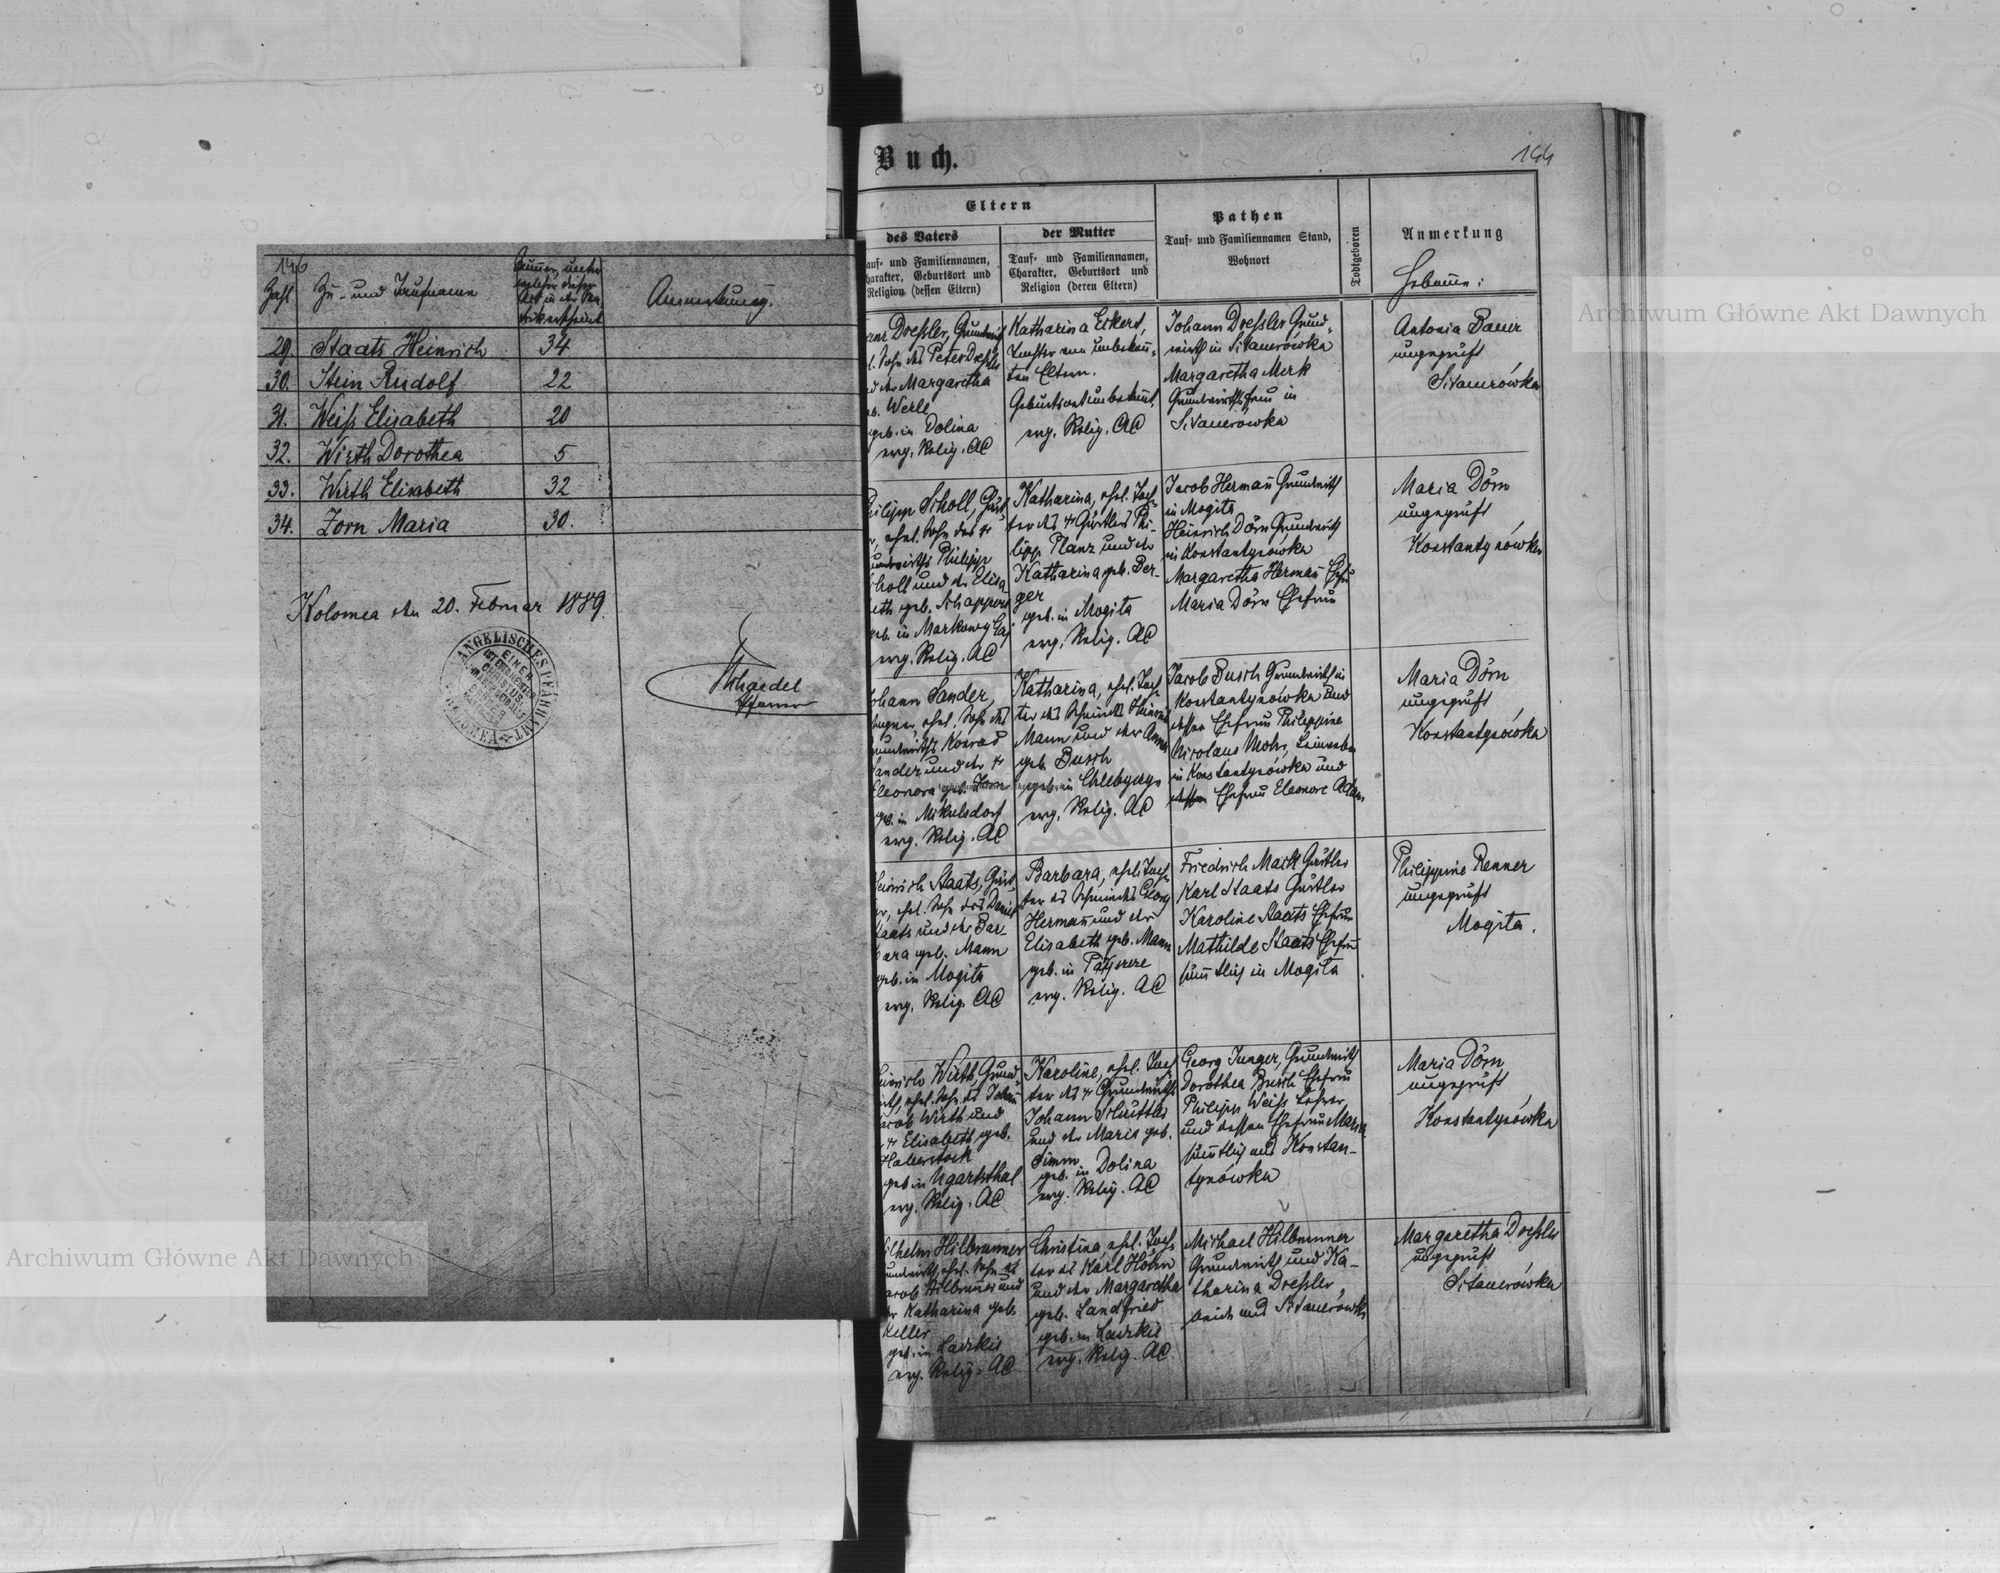 146
Zahl
Zu- und Taufname
Nummer, unter
welcher dieser
Act in der Ma-
trik erscheint
Anmerkung.
29. Staats Heinrich 34
30. Stein Rudolf 22
31. Weiß Elisabeth 20
32. Wirth Dorothea 5
33. Wirth Elisabeth 32
34. Zorn Maria 30.
Kolomea den 20. Februar 1889.
Schaedel
Pfarrer
Buch.
144
Eltern
des Vaters
auf- und Familiennamen,
harakter, Geburtsort und
Religion (dessen Eltern)
der Mutter
Tauf- und Familiennamen,
Charakter, Geburtsort und
Religion (deren Eltern)
Pathen
Tauf- und Familiennamen Stand,
Wohnort
Todtgeboren
Anmerkung
Hebamme:
Dreßler, Grundwirth
Sohn des Peter Dreßler
der Margaretha
geb. Werle
geb. in Dolina
evg. Relig. AC
Katharina Eckert,
Tochter von unbekann-
ten Eltern.
Geburtsort unbekannt,
evg. Relig. AC
Johann Dreßler Grund-
wirth in Sitauerówka
Margaretha Merk
Grundwirthsfrau in
Sitauerówka
Antonia Bauer
ungeprüft
Sitauerówka
Philipp Scholl, Gürt-
ehel. Sohn des †
Grundwirths Philipp
Scholl und der Elisa-
beth geb. Schappert
geb. in Markowy Gaj
evg. Relig. AC
Katharina, ehel. Toch-
ter des † Gürtlers Phi-
lipp Planz und der
Katharina geb. Ber-
ger
geb. in Mogita
evg. Relig. AC
Jacob Herman̄ Grundwirth
in Mogita
Heinrich Dörn Grundwirth
in Konstantynówka
Margaretha Herman̄ Ehefrau
Maria Dörn Ehefrau
Maria Dörn
ungeprüft
Konstantynówka
Johann Sander,
ehel. Sohn des
Grundwirths Konrad
Sander und der †
Eleonora geb. Zorn
geb. in Mikulsdorf
evg. Relig. AC
Katharina, ehel. Toch-
ter des Schmieds Heinrich
Mann und der Anna
geb. Busch
geb. in Chlebyczyn
evg. Relig. AC
Jacob Busch Grundwirth in
Konstantynówka und
dessen Ehefrau Philippine
Nicolaus Mohr, Leinweber
in Konstantynówka und
dessen Ehefrau Eleonore Adam
Maria Dörn
ungeprüft
Konstantynówka
Heinrich Staats, Gürt-
ehel. Sohn des Daniel
Staats und der Bar-
bara geb. Mann
geb. in Mogita
evg. Relig. AC
Barbara, ehel. Toch-
ter des Schmiedes Georg
Herman̄ und der
Elisabeth geb. Mann
geb. in
evg. Relig. AC
Friedrich Gürtler
Karl Staats Gürtler
Karoline Staats Ehefrau
Mathilde Staats Ehefrau
sämmtlich in Mogita
Philippine Renner
ungeprüft
Mogita.
Heinrich Wirth, Grund-
wirth, ehel. Sohn des Johann
Jacob Wirth und
† Elisabeth geb.
Haberstock
geb. in Ugartsthal
evg. Relig. AC
Karoline, ehel. Toch-
ter des † Grundwirths
Johann Schüttler
und der Maria geb.
Simm
geb. in Dolina
evg. Relig. AC
Georg Junger, Grundwirth
Dorothea Busch Ehefrau
Philipp Weiß Lehrer,
und dessen Ehefrau Maria
sämmtlich aus Konstan-
tynówka
Maria Dörn
ungeprüft
Konstantynówka
Wilhelm Hilbrunner
Grundwirth, ehel. Sohn des
Jacob Hilbrunner und
der Katharina geb.
Keller
geb. in Laszkie
evg. Relig. AC
Christina, ehel. Toch-
ter des Karl Höhn
und der Margaretha
geb. Landfried
geb. in Laszkie
evg. Relig. AC
Michael Hilbrunner
Grundwirth und Ka-
tharina Dreßler,
beide aus Sitauerówka
Margaretha Dreßler
ungeprüft
Sitauerówka
Archiwum Główne Akt Dawnych
Archiwum Główne Akt Dawnych